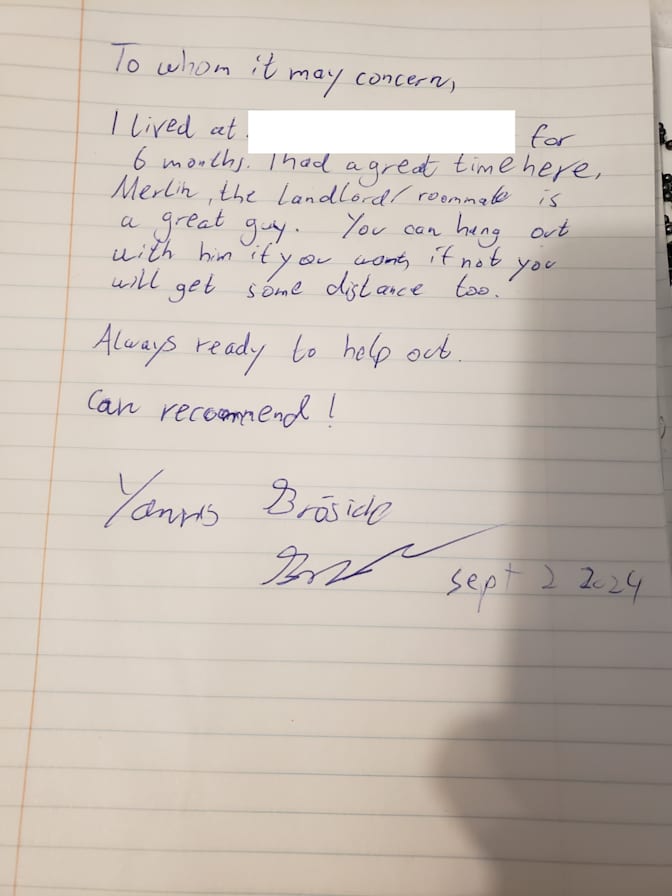 To whom it may concern,
I lived at for
6 months. I had a great time here,
Merlin, the landlord/roommate is
a great guy. You can hang out
with him if you want, if not you
will get some distance too.
Always ready to help out.
Can recommend!
Yannis
sept 2 2024